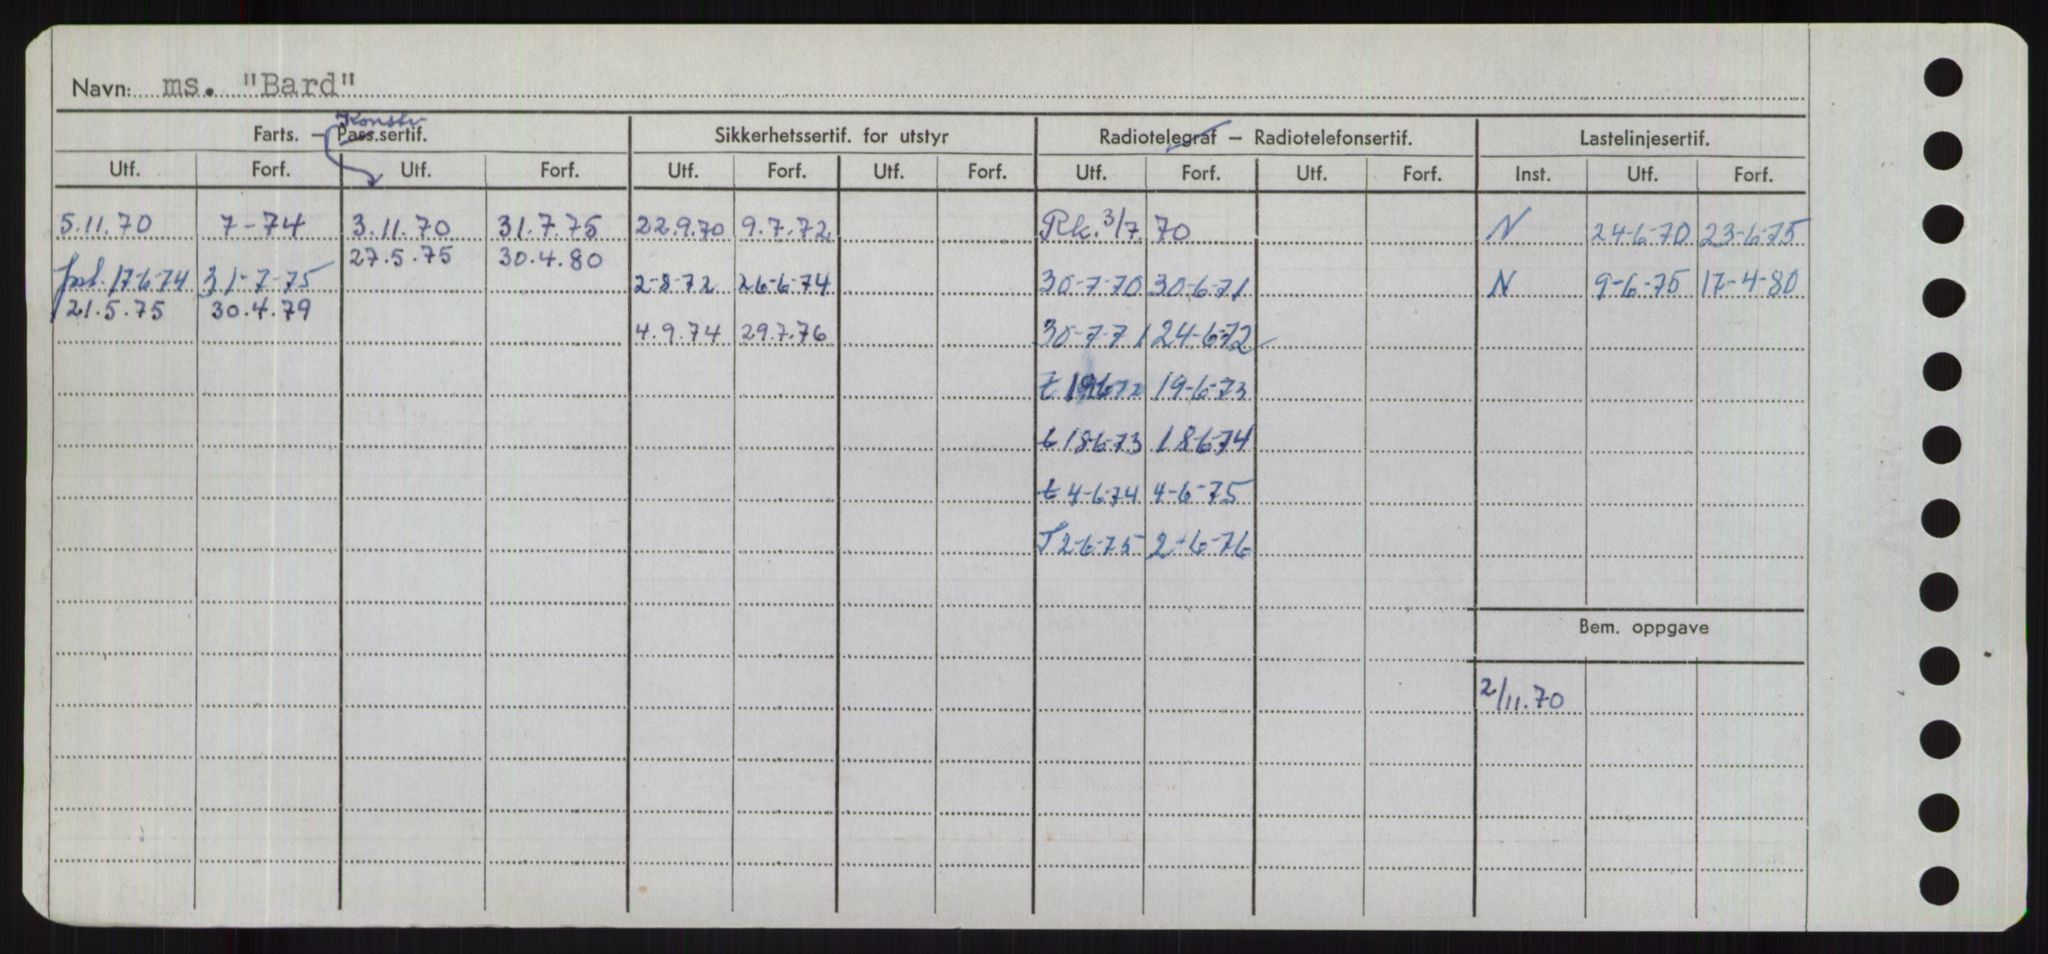 Navn: ms. "Bard"
Konstr
Farts. — Pass.sertif. Sikkerhetssertif. for utstyr Radiotelegraf — Radiotelefonsertif. Lastelinjesertif.
Utf. Forf. Utf. Forf. Utf. Forf. Utf. Forf. Utf. Forf. Utf. Forf. Inst. Utf. Forf.
5.11.70 7-74 3.11.70 31.7.75 22.9.70 9.7.72 Rk. 3/7 70 N 24-6-70 23-6-75
27.5.75 30.4.80
17-6-74 31-7-75 2-8-72 26-6-74 30-7-70 30-6-71 N 9-6-75 17-4-80
21.5.75 30.4.79
4.9.74 29.7.76 30-7-71 24-6-72
t 19-6-72 19-6-73
t 18-6-73 18-6-74
t 4-6-74 4-6-75
T 2-6-75 2-6-76
Bem. oppgave
2/11.70